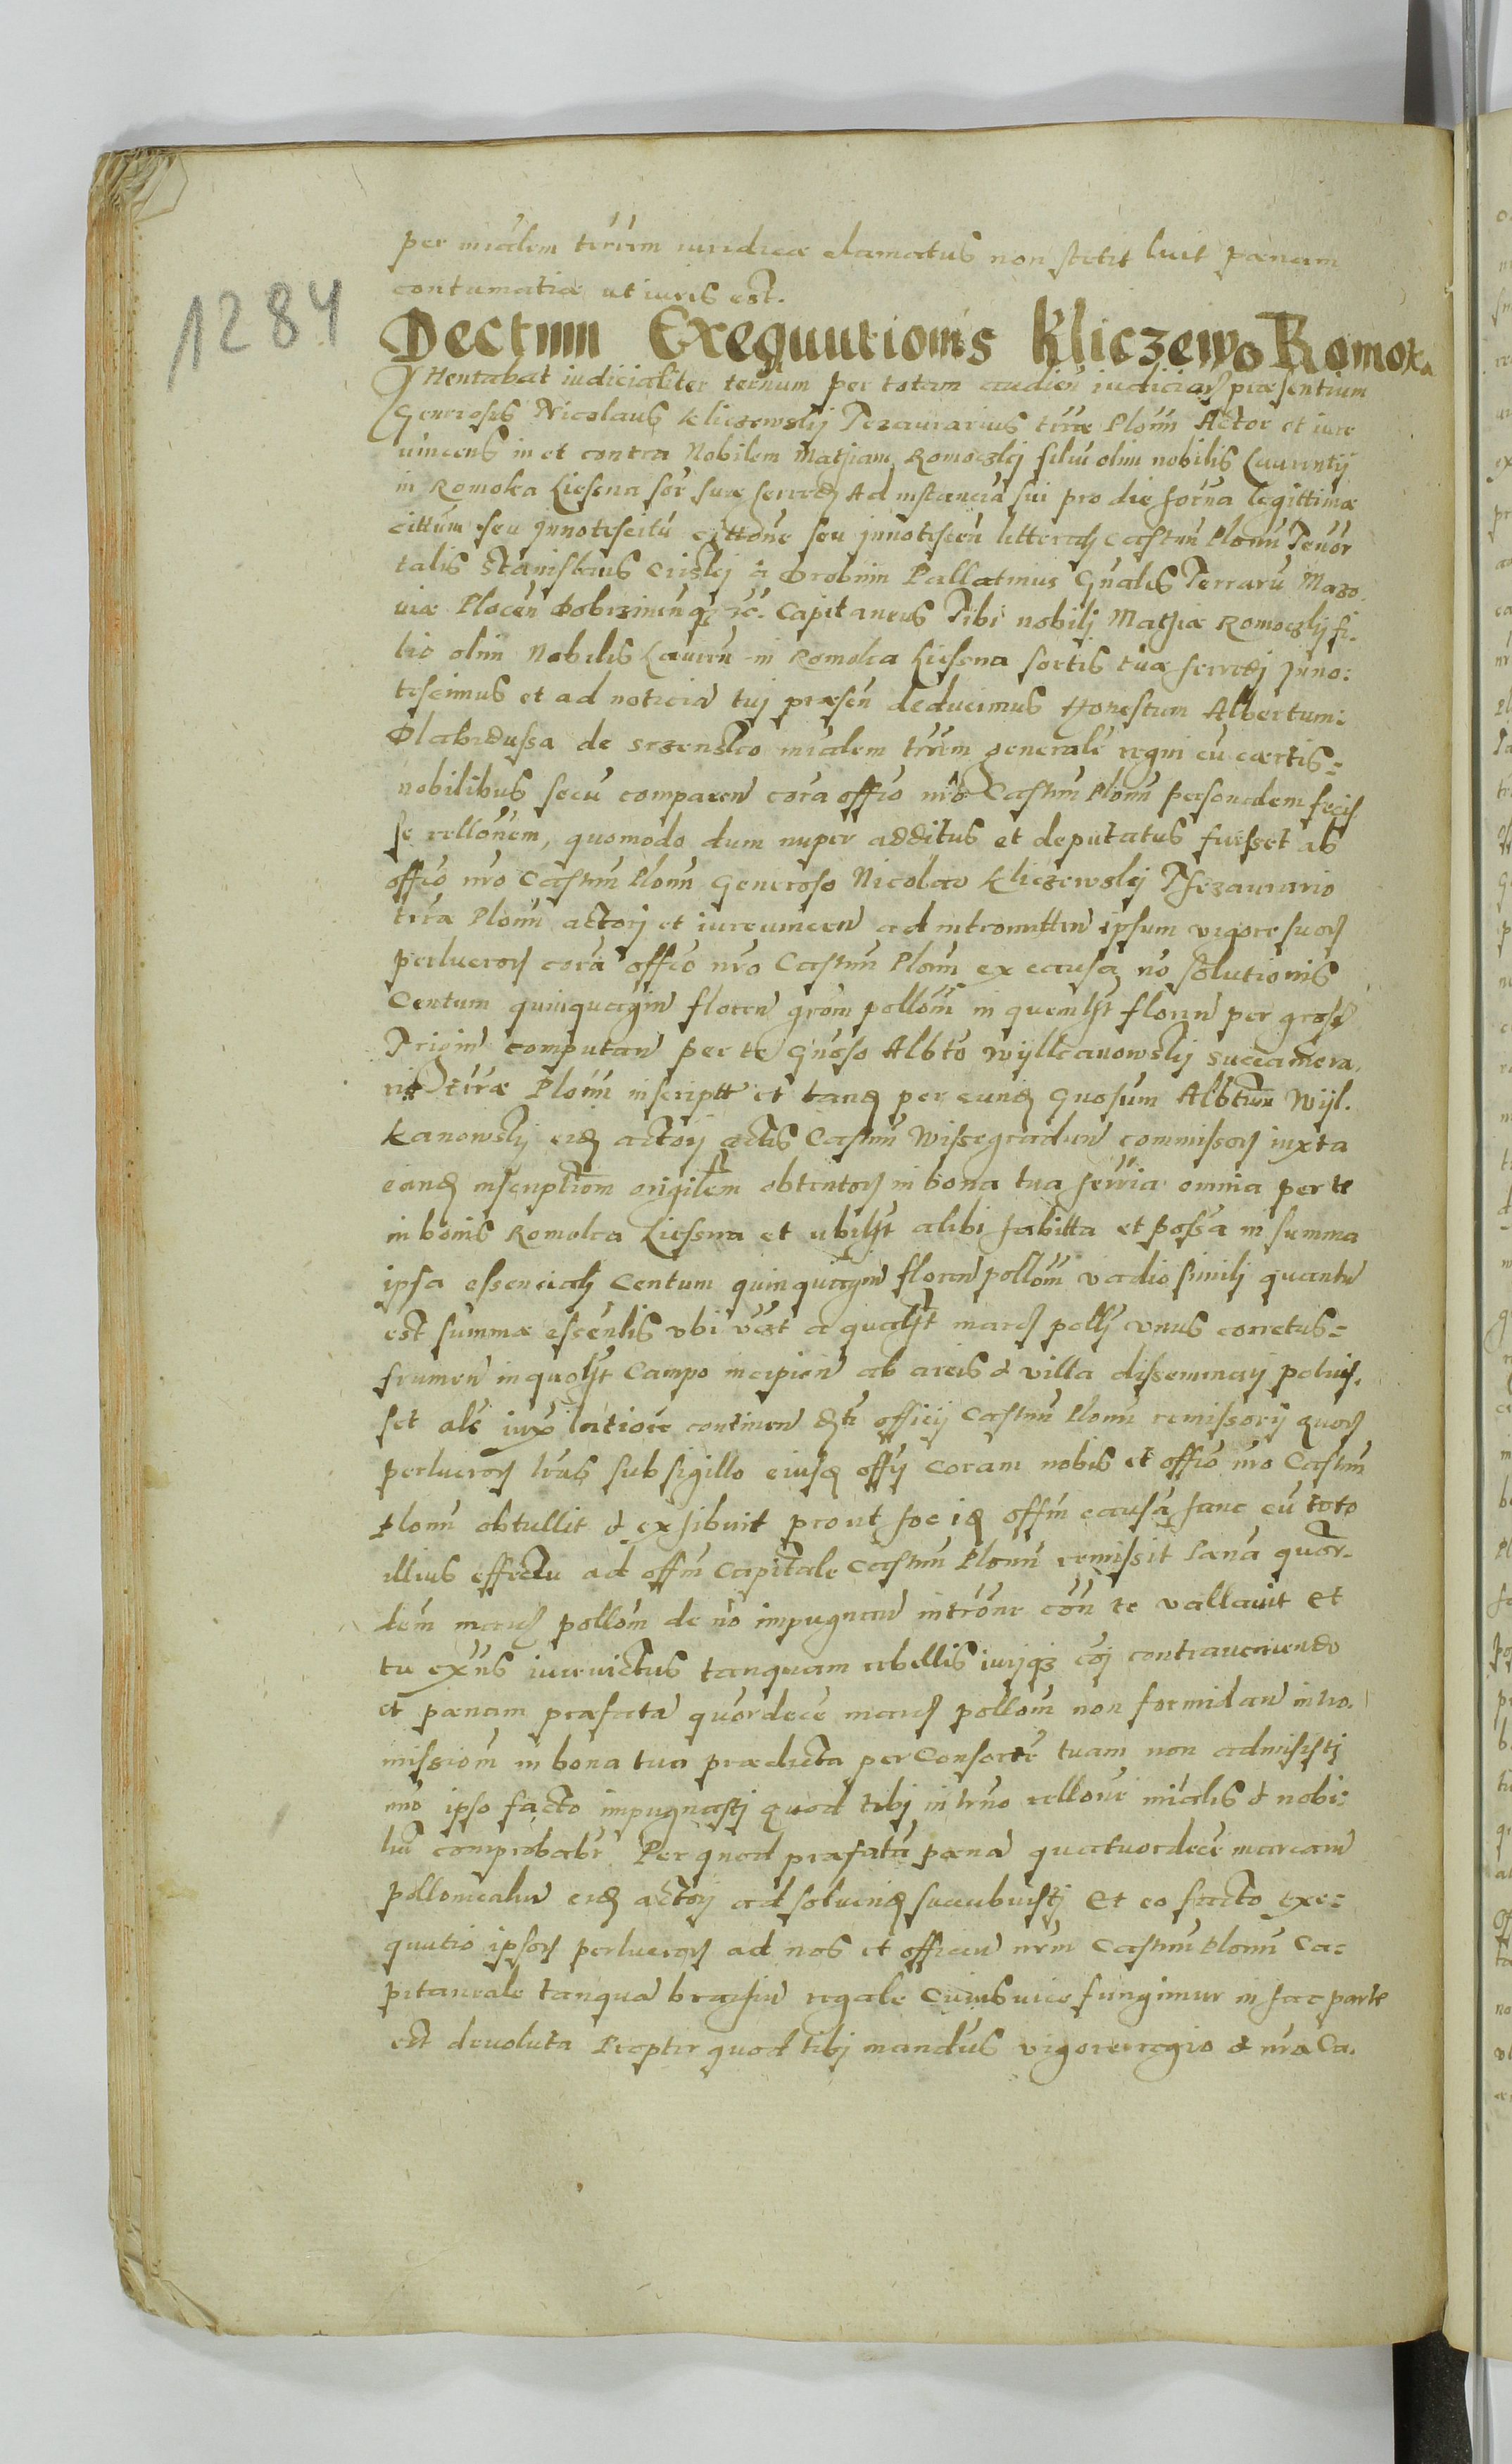 per mialem trrem iuridicæ clamatus non stetit luit pænam
contumatiæ ut iuris est.
1284
Dectum Exequutionis Kliczewo Romoka
Attentabat iudicialiter ternum per totam audien iudiciar præsentium
Generosus Nicolaus Kliczewskj Tezaurarius træ Plonn Actor et iure
uincens in et contra Nobilem Mathiam Romoczkj filiu olim nobilis Laurentij
in Romoka Liessna sor suæ hæred Ad instancia sui pro die horna legittimæ
cittum seu jnnotescitu cittone seu jnnotescen litteras castrn Plonn Tenor
talis Stanislaus Criskj a Drobnin Pallatinus Gnalis Terraru Mazo.
uiæ Plocen Dobrzinenq etc. Capitaneus Tibi nobilj Mathiæ Romoczkj fi-
lio olim Nobilis Lauren in Romoka Liessna sortis tuæ hæredj Jnno:
tescimus et ad noticia tuj præsen deducimus Honestum Albertum
de mialem trrem generale regni cu cærtis=
nobilibus secu comparen cora offio nro Castrn Plonn personalem fecis
se rellonem, quomodo dum nuper additus et deputatus fuisset ab
offio nro Castrn Plonn Generoso Nicolao Kliczewskj Thezaurario
træ Plonn actorj et iureuincen ad intromitten ipsum vigore suor
perlucror cora offio nro Castrn Plonn ex causa no solutionis
Centum quinquagin floren grom pollom in quemlibet floren per gross
Trigin computan per te Gnoso Albto Wylkanowskj succamera.
rio træ Plonn inscript et tand per eund Gnosum Albtum Wyl.
kanowskj eid actorj actis Castrn Wissegraden commissor iuxta
eand inscriptiom origilem obtentor in bona tua hæria omnia per te
in bonis Romoka Liessna et ubilibet alibi habitta et possa in summa
ipsa essencialj Centum quinquagin floren pollom vadio similj quantu
est summæ essenlis vbi a qualibet marc pollj vnus corretus=
frumen in quolibet Campo incipien ab areis & villa disseminarj potuis.
set als iuxa latiore continen officij Castrn Plonn remissorij quor
perlucror lras sub sigillo eiusd offij coram nobis et offio nro Castrn
Plonn obtullit & exhibuit prout hoc id offm causa hanc cu toto
illius effectu ad offm Capitale Castrn Plonn remissit pæna quor-
dem marc pollom de no impugnan introne con te vallauit Et
tu exns iureuictus tanquam rebellis iurjqz coj contraueniendo
et pænam præfata quordece marc pollom non formidan intro.
missiom in bona tua prædicta per Consorte tuam non admisistj
imo ipso facto impugnastj quod tibj in trno rellone mialis & nobi:
liu comprobabr Per quod præfata pæna quatuordece marcam
pollonicaliu eid actorj ad soluend succubuistj Et eo facto Exe=
quutio ipsor perlucror ad nos et officiu nrm Castrn Plonn Ca=
pitaneale tanqua brachiu regale Cuius uice fungimur in hac parte
est deuoluta Propter quod tibj mandus vigore regio & nro Ca.